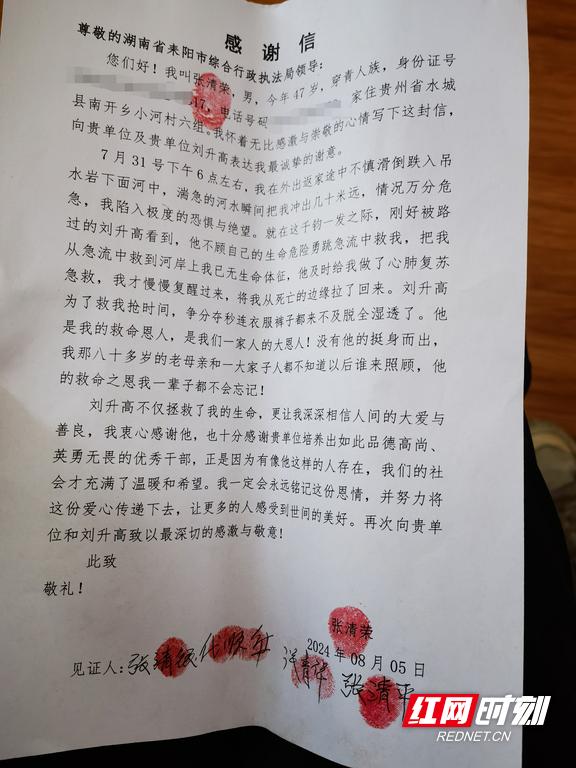 感谢信
尊敬的湖南省耒阳市综合行政执法局领导：
您们好！我叫张清荣，男，今年47岁，穿青人族，身份证号
17，电话号码 家住贵州省水城
县南开乡小河村六组。我怀着无比感激与崇敬的心情写下这封信，
向贵单位及贵单位刘升高表达我最诚挚的谢意。
7月31号下午6点左右，我在外出返家途中不慎滑倒跌入吊
水岩下面河中，湍急的河水瞬间把我冲出几十米远，情况万分危
急，我陷入极度的恐惧与绝望。就在这千钧一发之际，刚好被路
过的刘升高看到，他不顾自己的生命危险勇跳急流中救我，把我
从急流中救到河岸上我已无生命体征，他及时给我做了心肺复苏
急救，我才慢慢复醒过来，将我从死亡的边缘拉了回来。刘升高
为了救我抢时间，争分夺秒连衣服裤子都来不及脱全湿透了。他
是我的救命恩人，是我们一家人的大恩人！没有他的挺身而出，
我那八十多岁的老母亲和一大家子人都不知道以后谁来照顾，他
的救命之恩我一辈子都不会忘记！
刘升高不仅拯救了我的生命，更让我深深相信人间的大爱与
善良，我衷心感谢他，也十分感谢贵单位培养出如此品德高尚、
英勇无畏的优秀干部，正是因为有像他这样的人存在，我们的社
会才充满了温暖和希望。我一定会永远铭记这份恩情，并努力将
这份爱心传递下去，让更多的人感受到世间的美好。再次向贵单
位和刘升高致以最深切的感激与敬意！
此致
敬礼！
张清荣
2024年08月05日
见证人：张 张清平
红网时刻
REDNET.CN